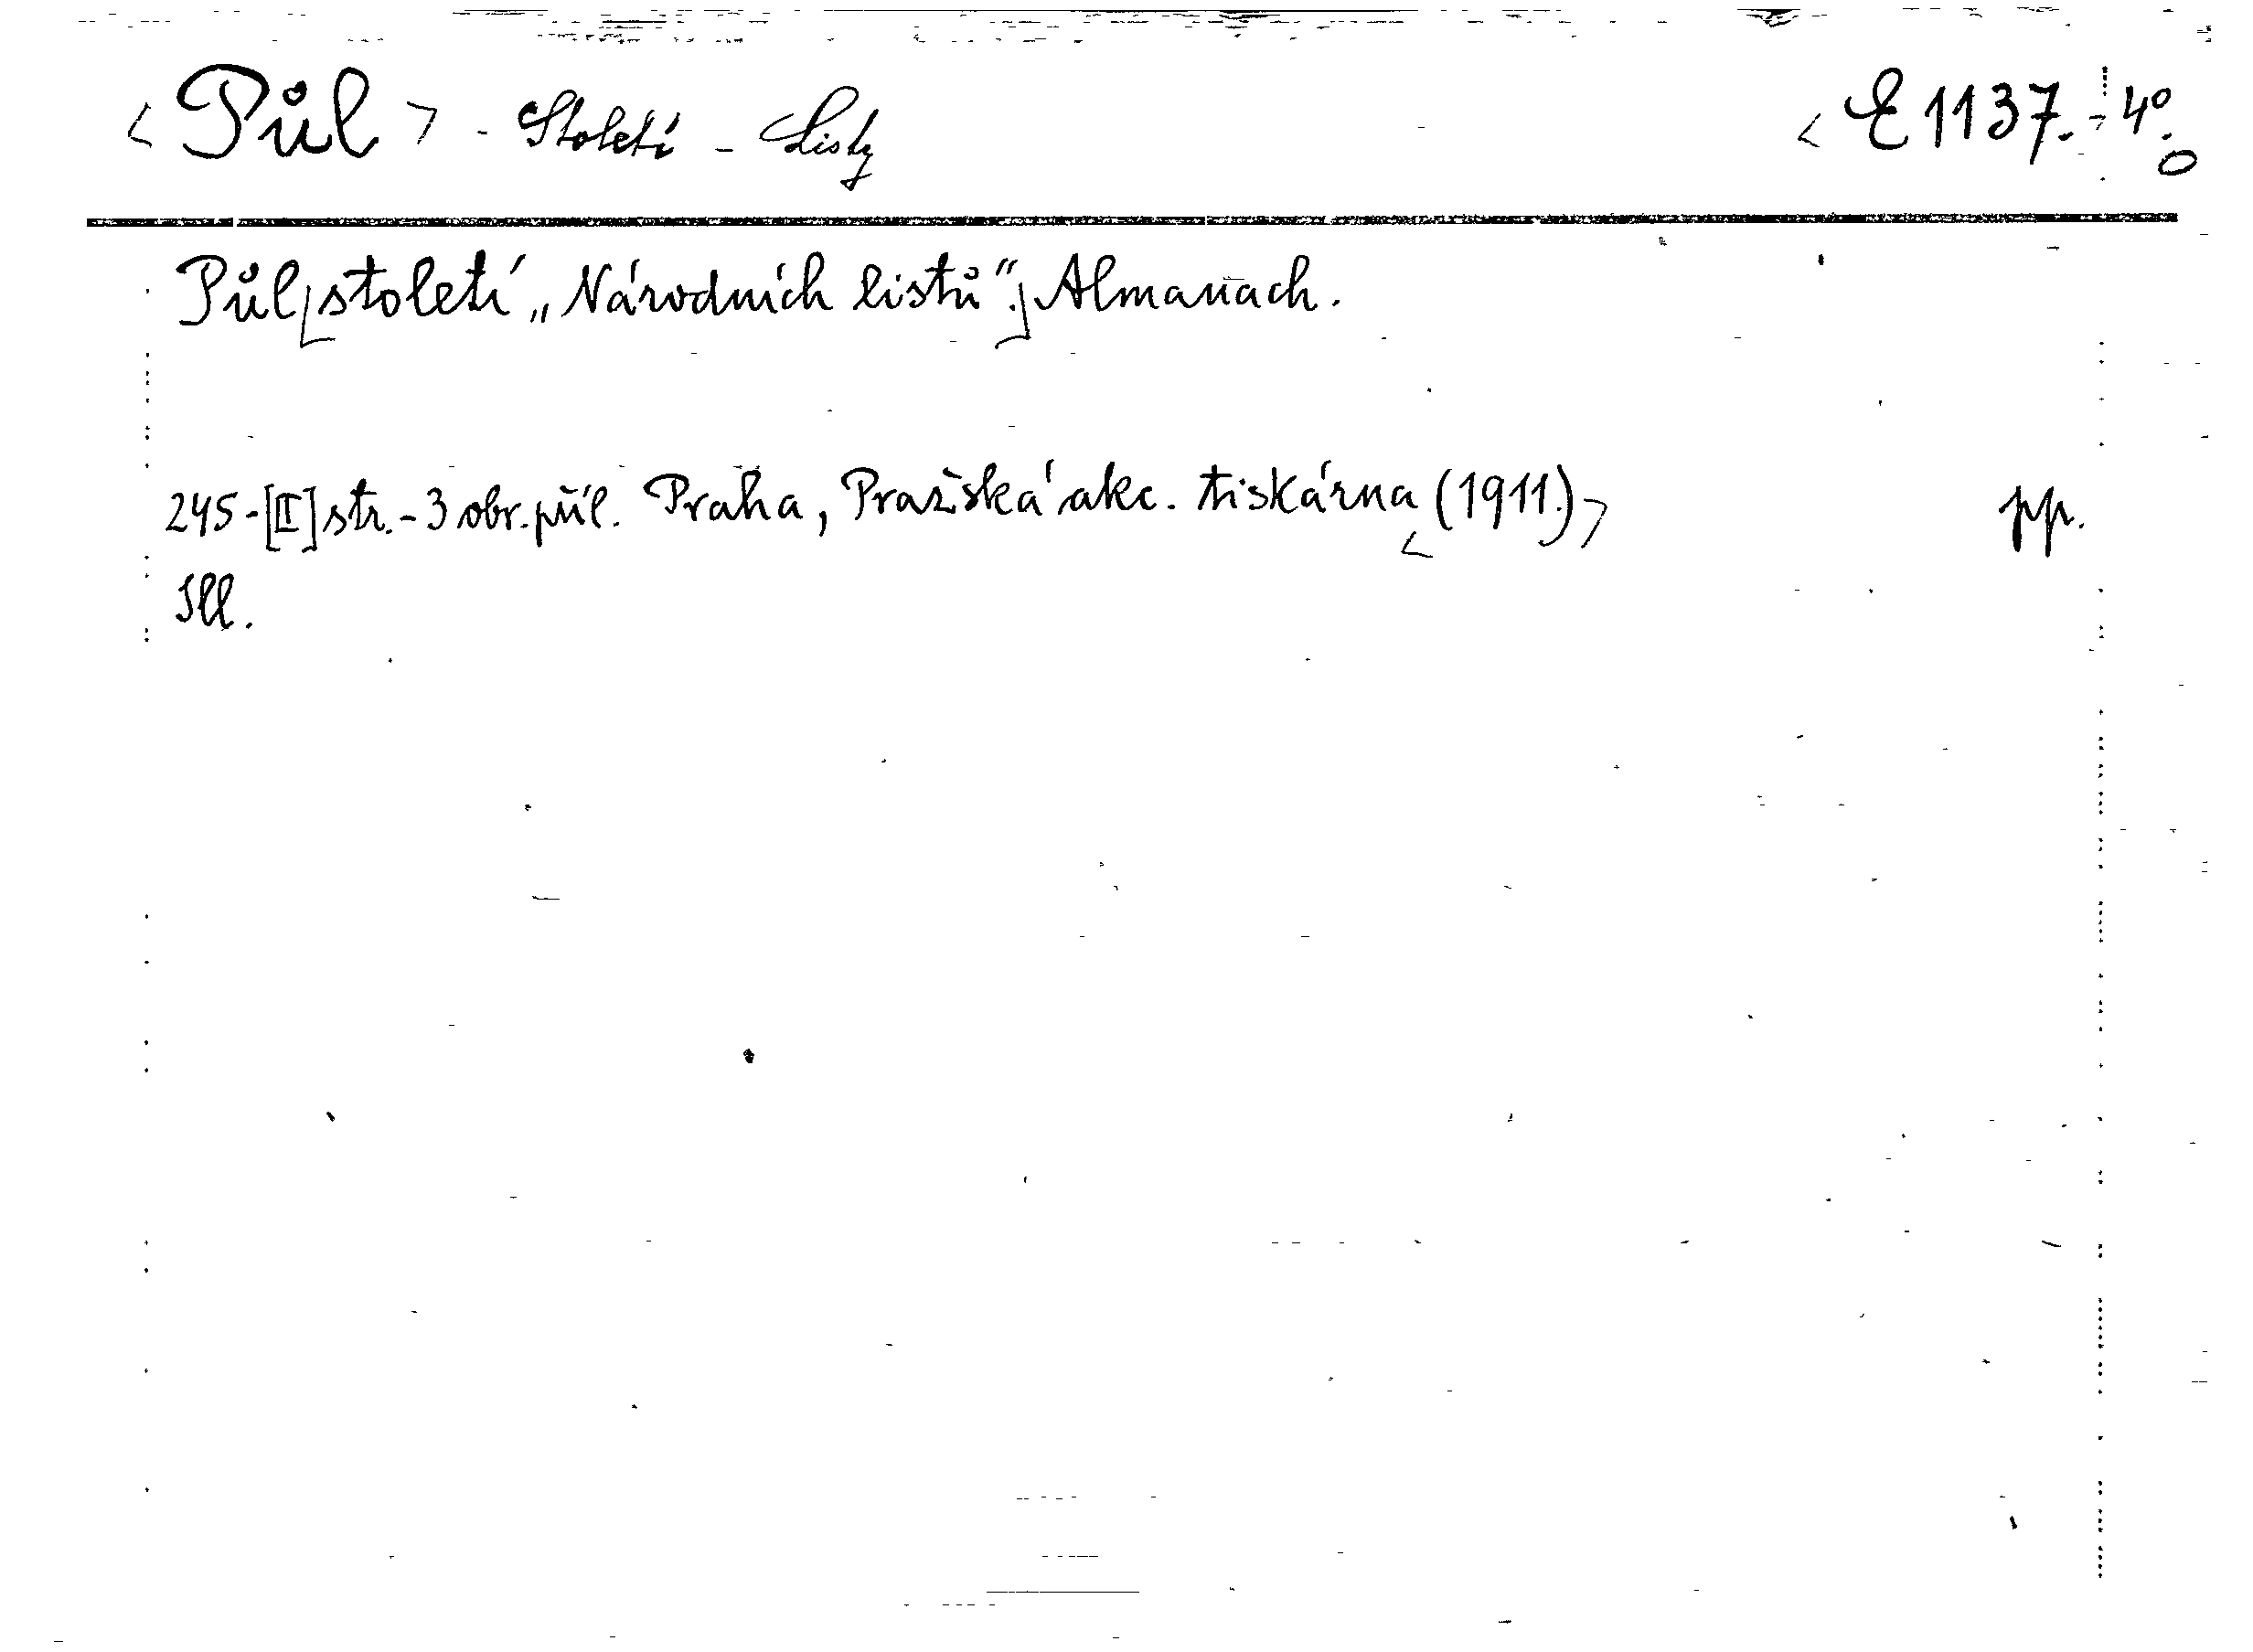 < Půl > - Století - Listy < E 1137. - 4°.
Půl [století „Národních listů“.] Almanach.
245-[II] str. - 3 obr. příl. Praha, Pražská akc. tiskárna <(1911.)> pp.
Ill.